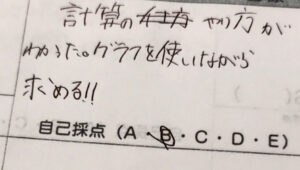 計算のやり方が
わかった。グラフを使いながら
求める!!
自己採点(A・B・C・D・E)